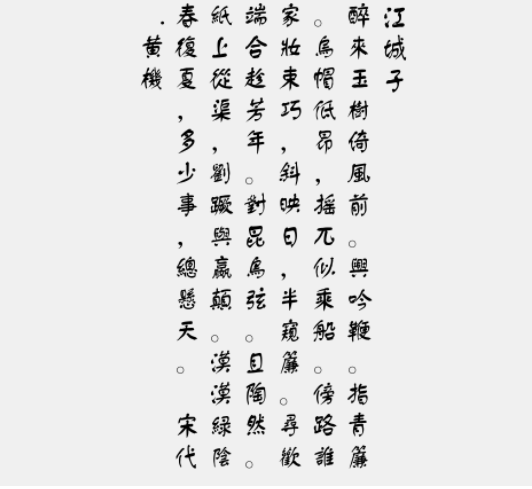 江城子
醉來玉樹倚風前。興吟鞭。指青簾
。烏帽低昂，摇兀似乘船。傍路誰
家妝束巧，斜映日，半窺簾。尋歡
端合趁芳年。對昆烏弦。且陶然。
紙上從渠，劉蹶與贏顛。漠漠綠陰
春復夏，多少事，總懸天。 宋代
.黃機